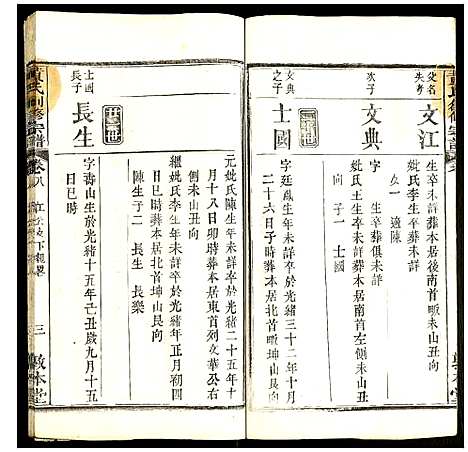 父名失考
文江
生卒未詳葬居後南首未山丑向
妣氏李生卒未詳葬
女一 適陳
次子
文典
生卒葬俱未詳
妣氏王生卒未詳葬本居南首左側未山丑
向 子一 士國
文典之子
士國
字廷
生年未詳卒於光緒三十二年十月
二十六日子時葬本居北首畈坤山艮向
世
元妣氏陳生年未詳卒於光緒二十五年十
月十八日卯時葬本居東首列文華公右
側未山丑向
繼妣氏李生年未詳卒於光緒年正月初四
日巳時葬本居北首坤山艮向
陳生子二 長生 長樂
士國長子
長生
字壽山生於光緒十五年己丑歲九月十五
日巳時
氏創修宗譜
卷八
三
敦本堂